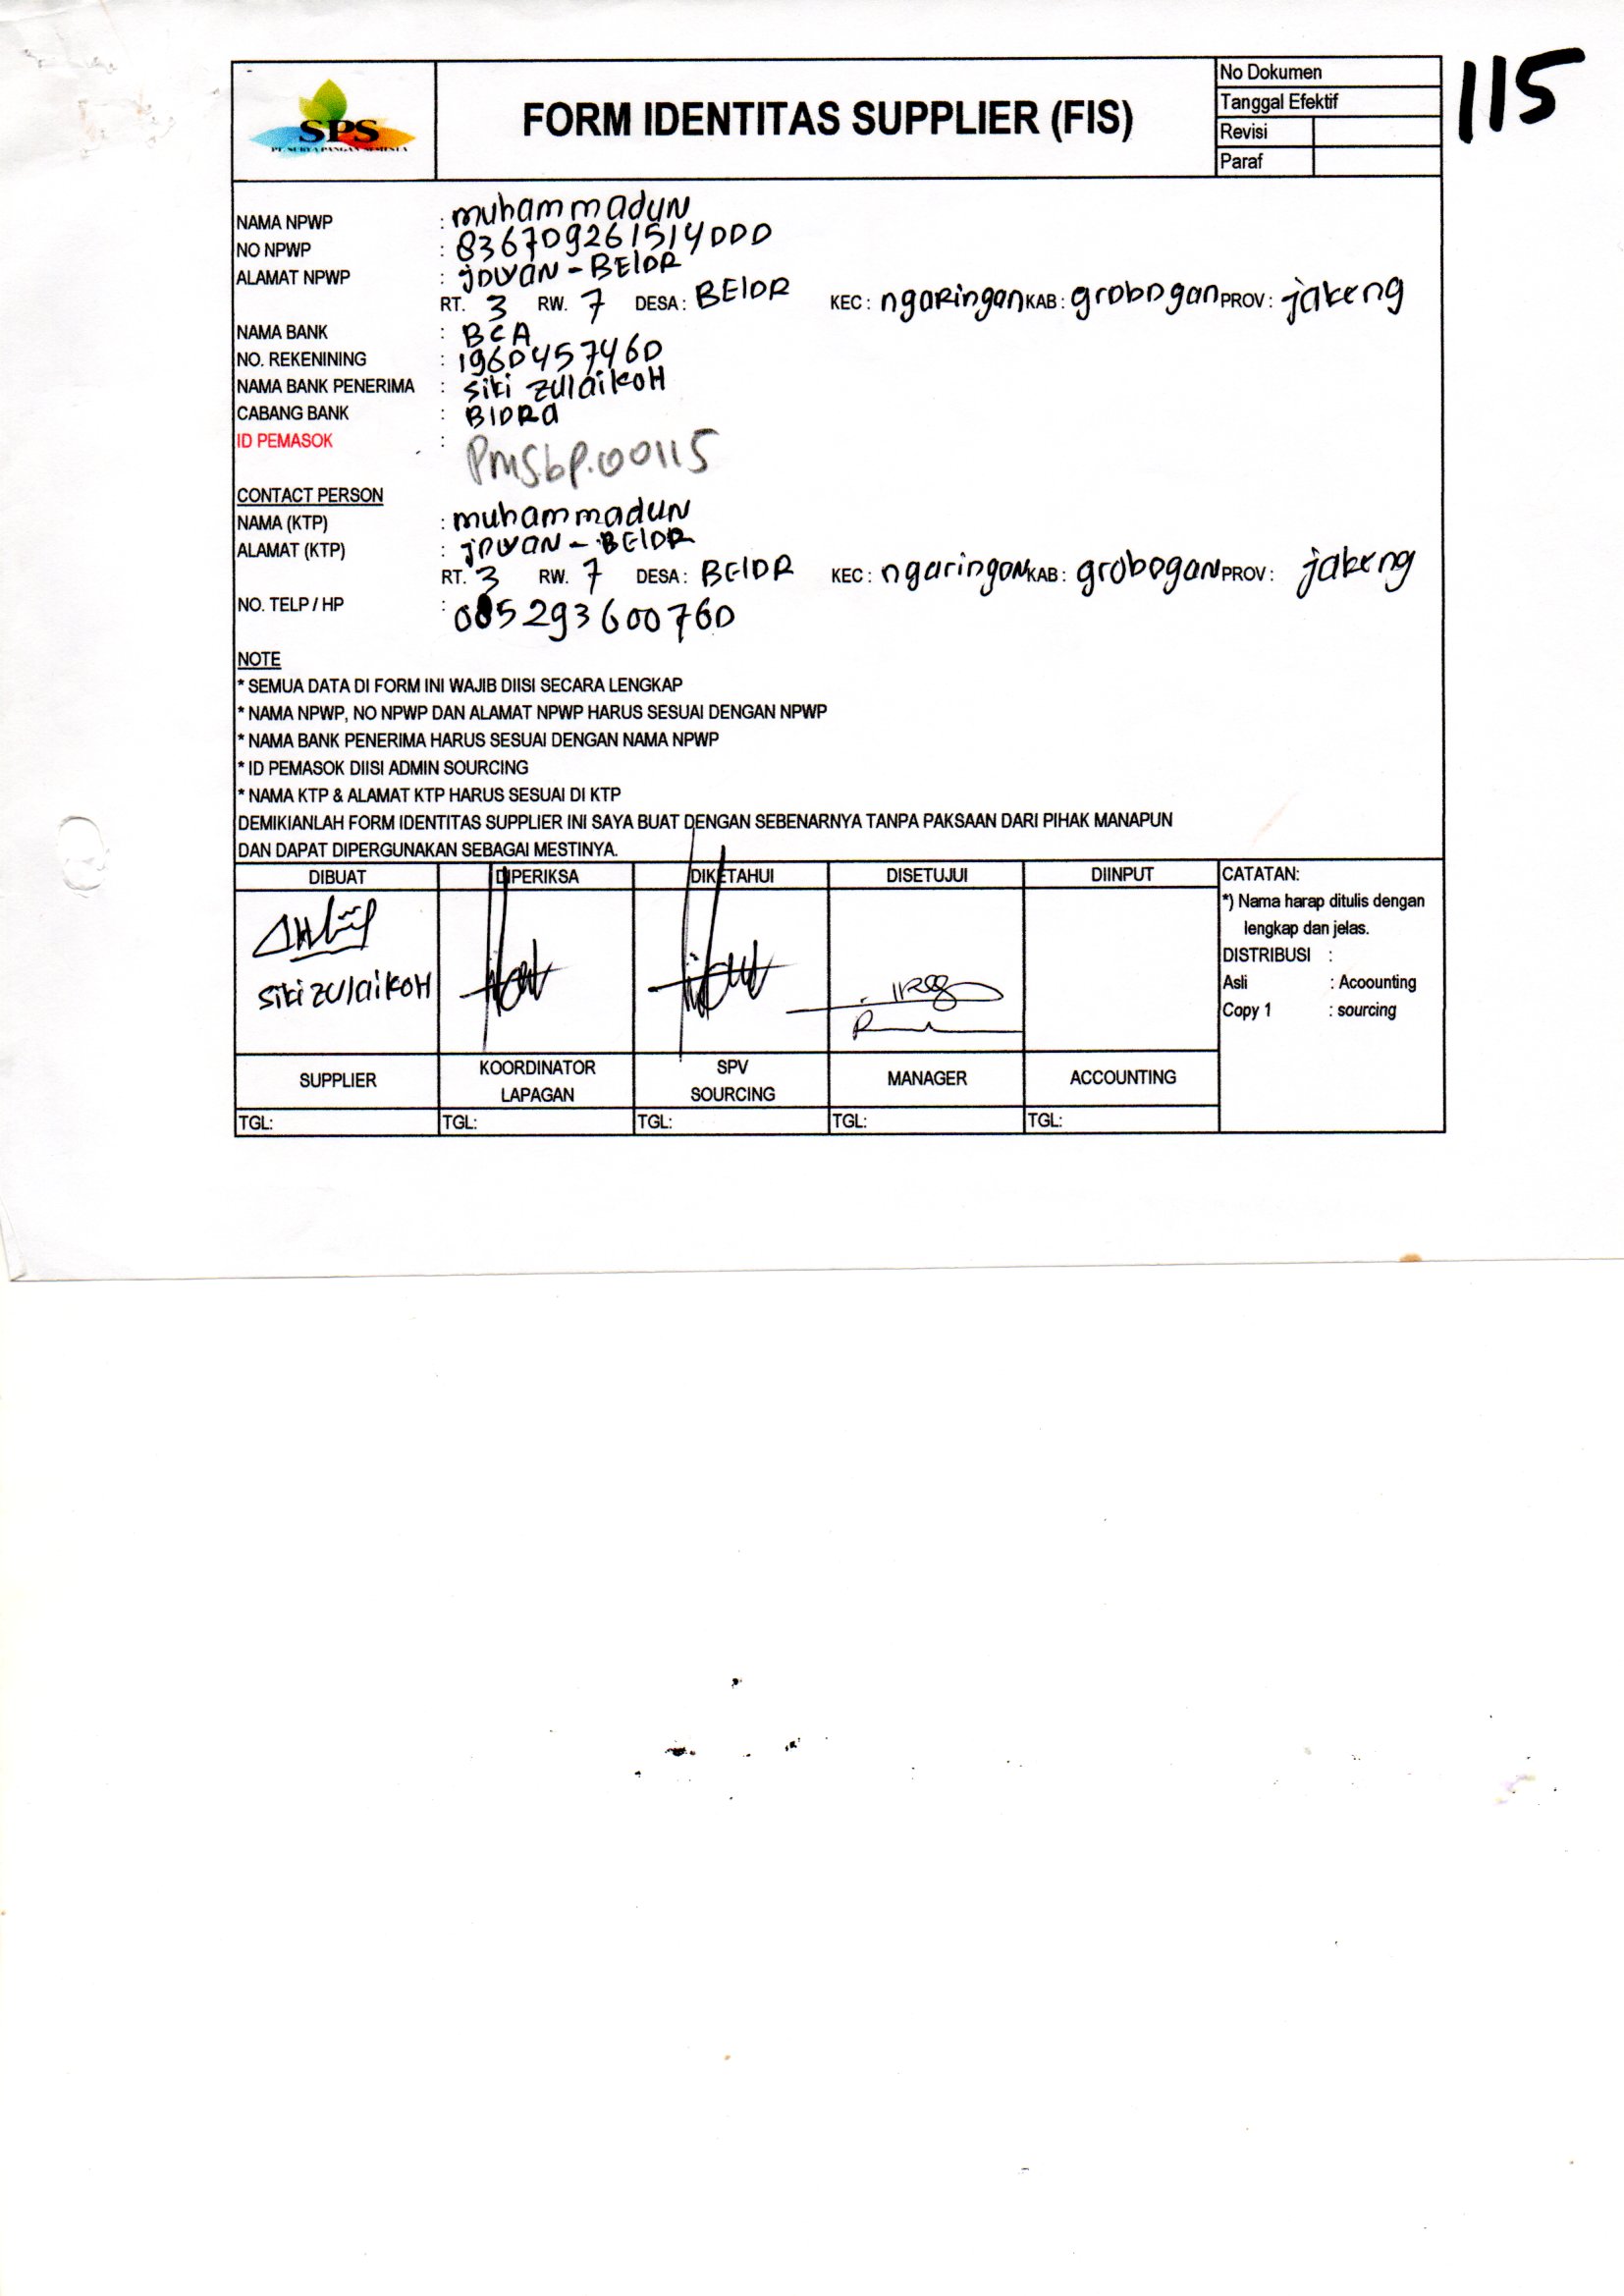 SPS
PT. SURYA PANGAN SEMESTA
FORM IDENTITAS SUPPLIER (FIS)
No Dokumen
Tanggal Efektif
Revisi
Paraf
115
NAMA NPWP : muhammadun
NO NPWP : 836709261514000
ALAMAT NPWP : jowan - BElOR
RT. 3 RW. 7 DESA : BElOR KEC : ngaringan KAB : grobogan PROV : jateng
NAMA BANK : BCA
NO. REKENINING : 1960457460
NAMA BANK PENERIMA : siti zulaikoH
CABANG BANK : BlORa
ID PEMASOK : PMSbP.00115
CONTACT PERSON
NAMA (KTP) : muhammadun
ALAMAT (KTP) : jowan - BElOR
RT. 3 RW. 7 DESA : BElOR KEC : ngaringan KAB : grobogan PROV : jateng
NO. TELP / HP : 085293600760
NOTE
* SEMUA DATA DI FORM INI WAJIB DIISI SECARA LENGKAP
* NAMA NPWP, NO NPWP DAN ALAMAT NPWP HARUS SESUAI DENGAN NPWP
* NAMA BANK PENERIMA HARUS SESUAI DENGAN NAMA NPWP
* ID PEMASOK DIISI ADMIN SOURCING
* NAMA KTP & ALAMAT KTP HARUS SESUAI DI KTP
DEMIKIANLAH FORM IDENTITAS SUPPLIER INI SAYA BUAT DENGAN SEBENARNYA TANPA PAKSAAN DARI PIHAK MANAPUN
DAN DAPAT DIPERGUNAKAN SEBAGAI MESTINYA.
DIBUAT DIPERIKSA DIKETAHUI DISETUJUI DIINPUT
siti zulaikoH
SUPPLIER KOORDINATOR LAPAGAN SPV SOURCING MANAGER ACCOUNTING
TGL: TGL: TGL: TGL: TGL:
CATATAN:
*) Nama harap ditulis dengan
lengkap dan jelas.
DISTRIBUSI :
Asli : Acoounting
Copy 1 : sourcing